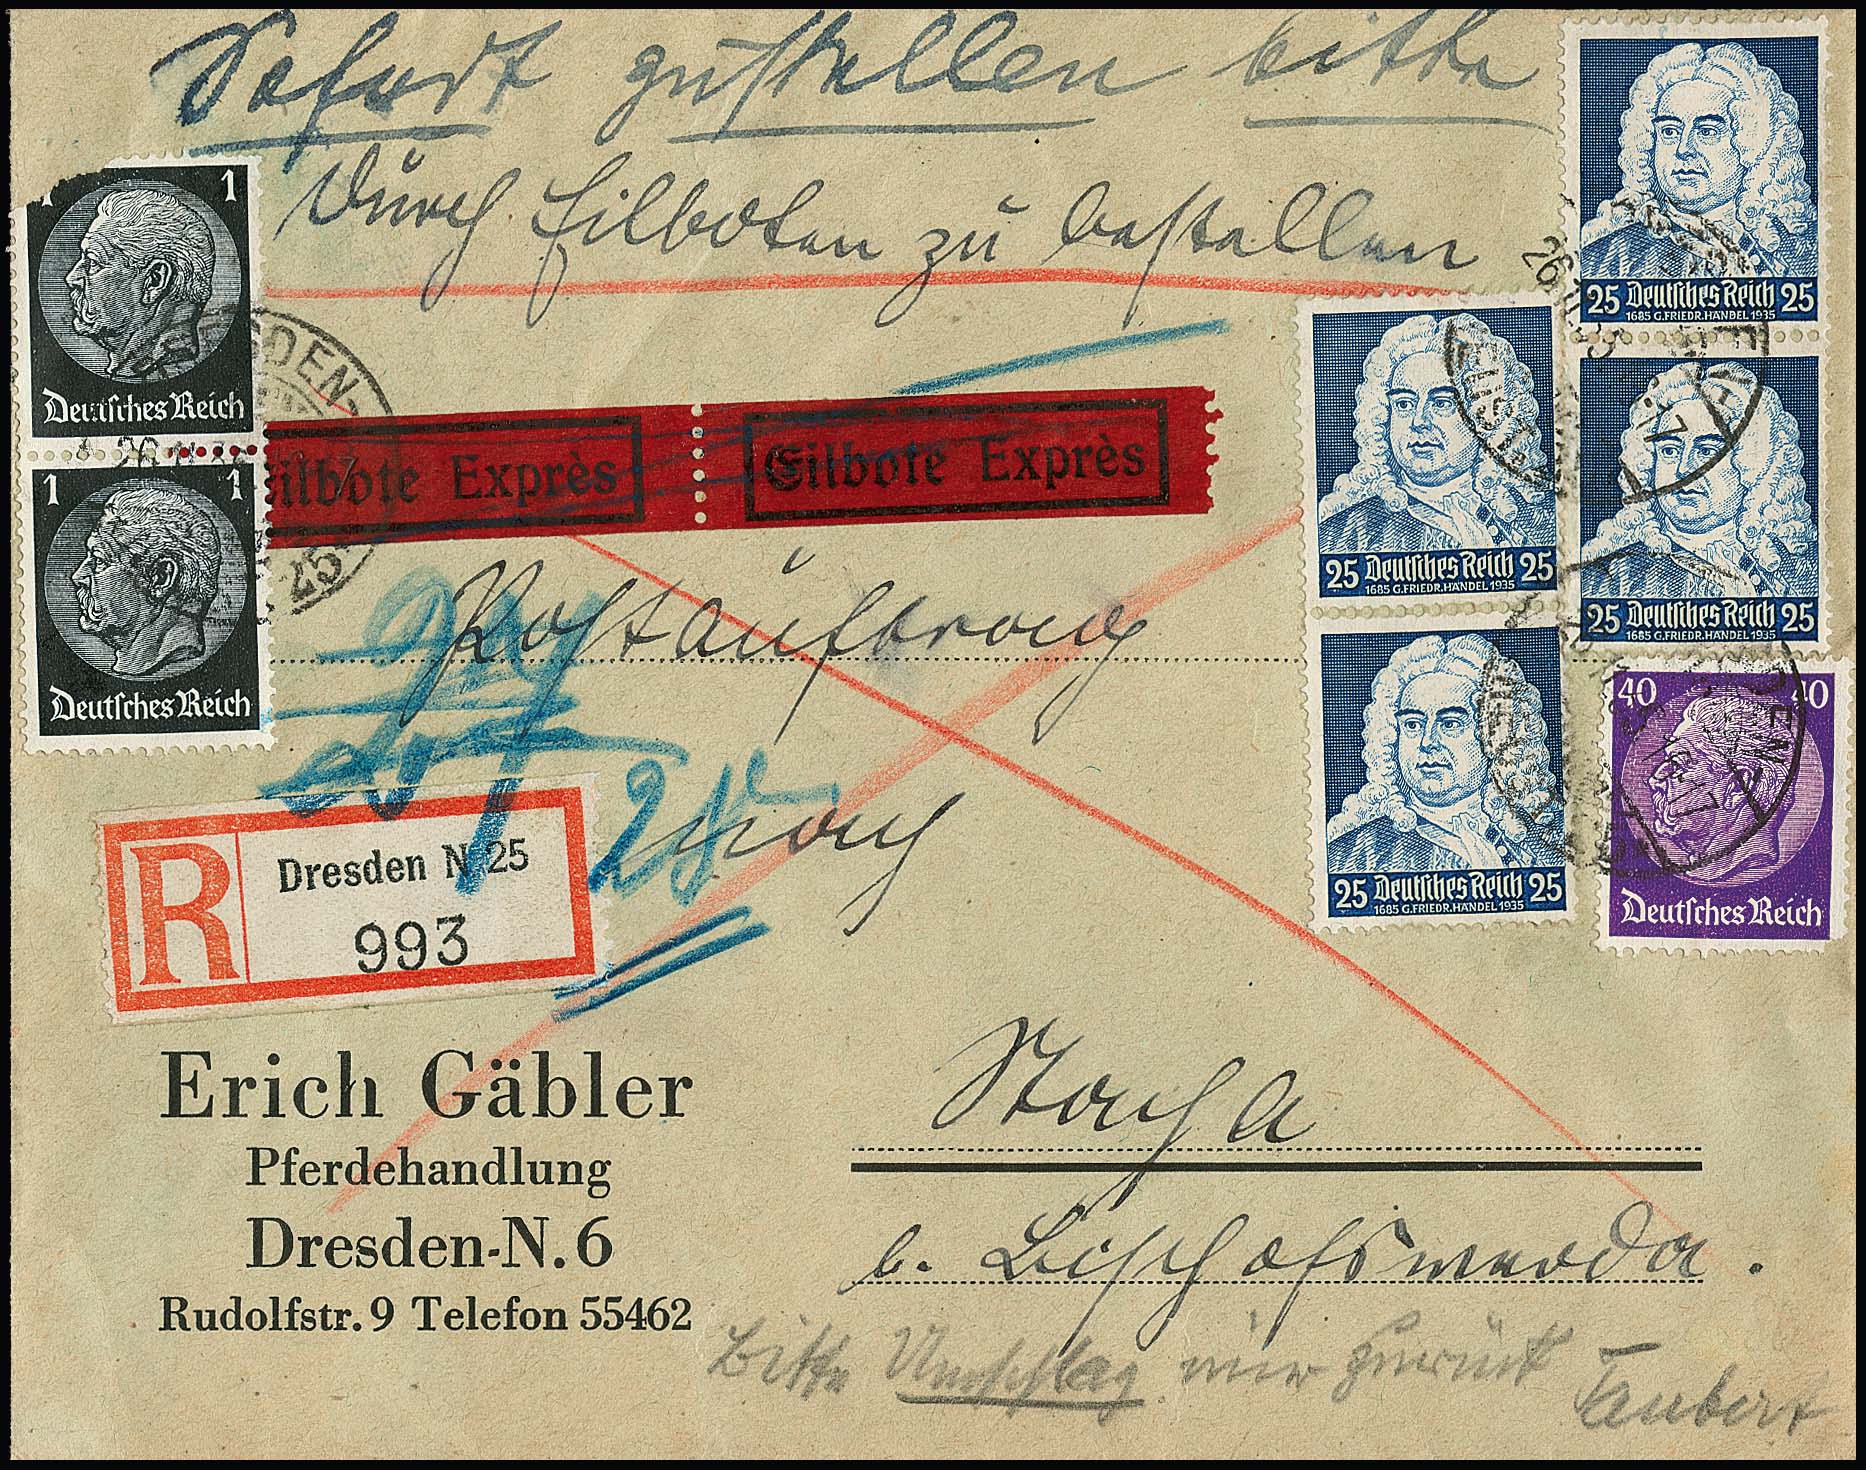 Sofort zustellen bitte
Durch Eilboten zu bestellen
1
Deutsches Reich
1 1
Deutsches Reich
DRESDEN
25
Eilbote Exprès
Eilbote Exprès
25 Deutsches Reich 25
1685 G.FRIEDR.HÄNDEL 1935
25 Deutsches Reich 25
1685 G.FRIEDR.HÄNDEL 1935
25 Deutsches Reich 25
1685 G.FRIEDR.HÄNDEL 1935
25 Deutsches Reich 25
1685 G.FRIEDR.HÄNDEL 1935
40 40
Deutsches Reich
Postauftrag
nach
R
Dresden N 25
993
Erich Gäbler
Pferdehandlung
Dresden-N. 6
Rudolfstr. 9 Telefon 55462
Stacha
b. Bischofswerda.
Bitte Umschlag mir zurück
Taubert